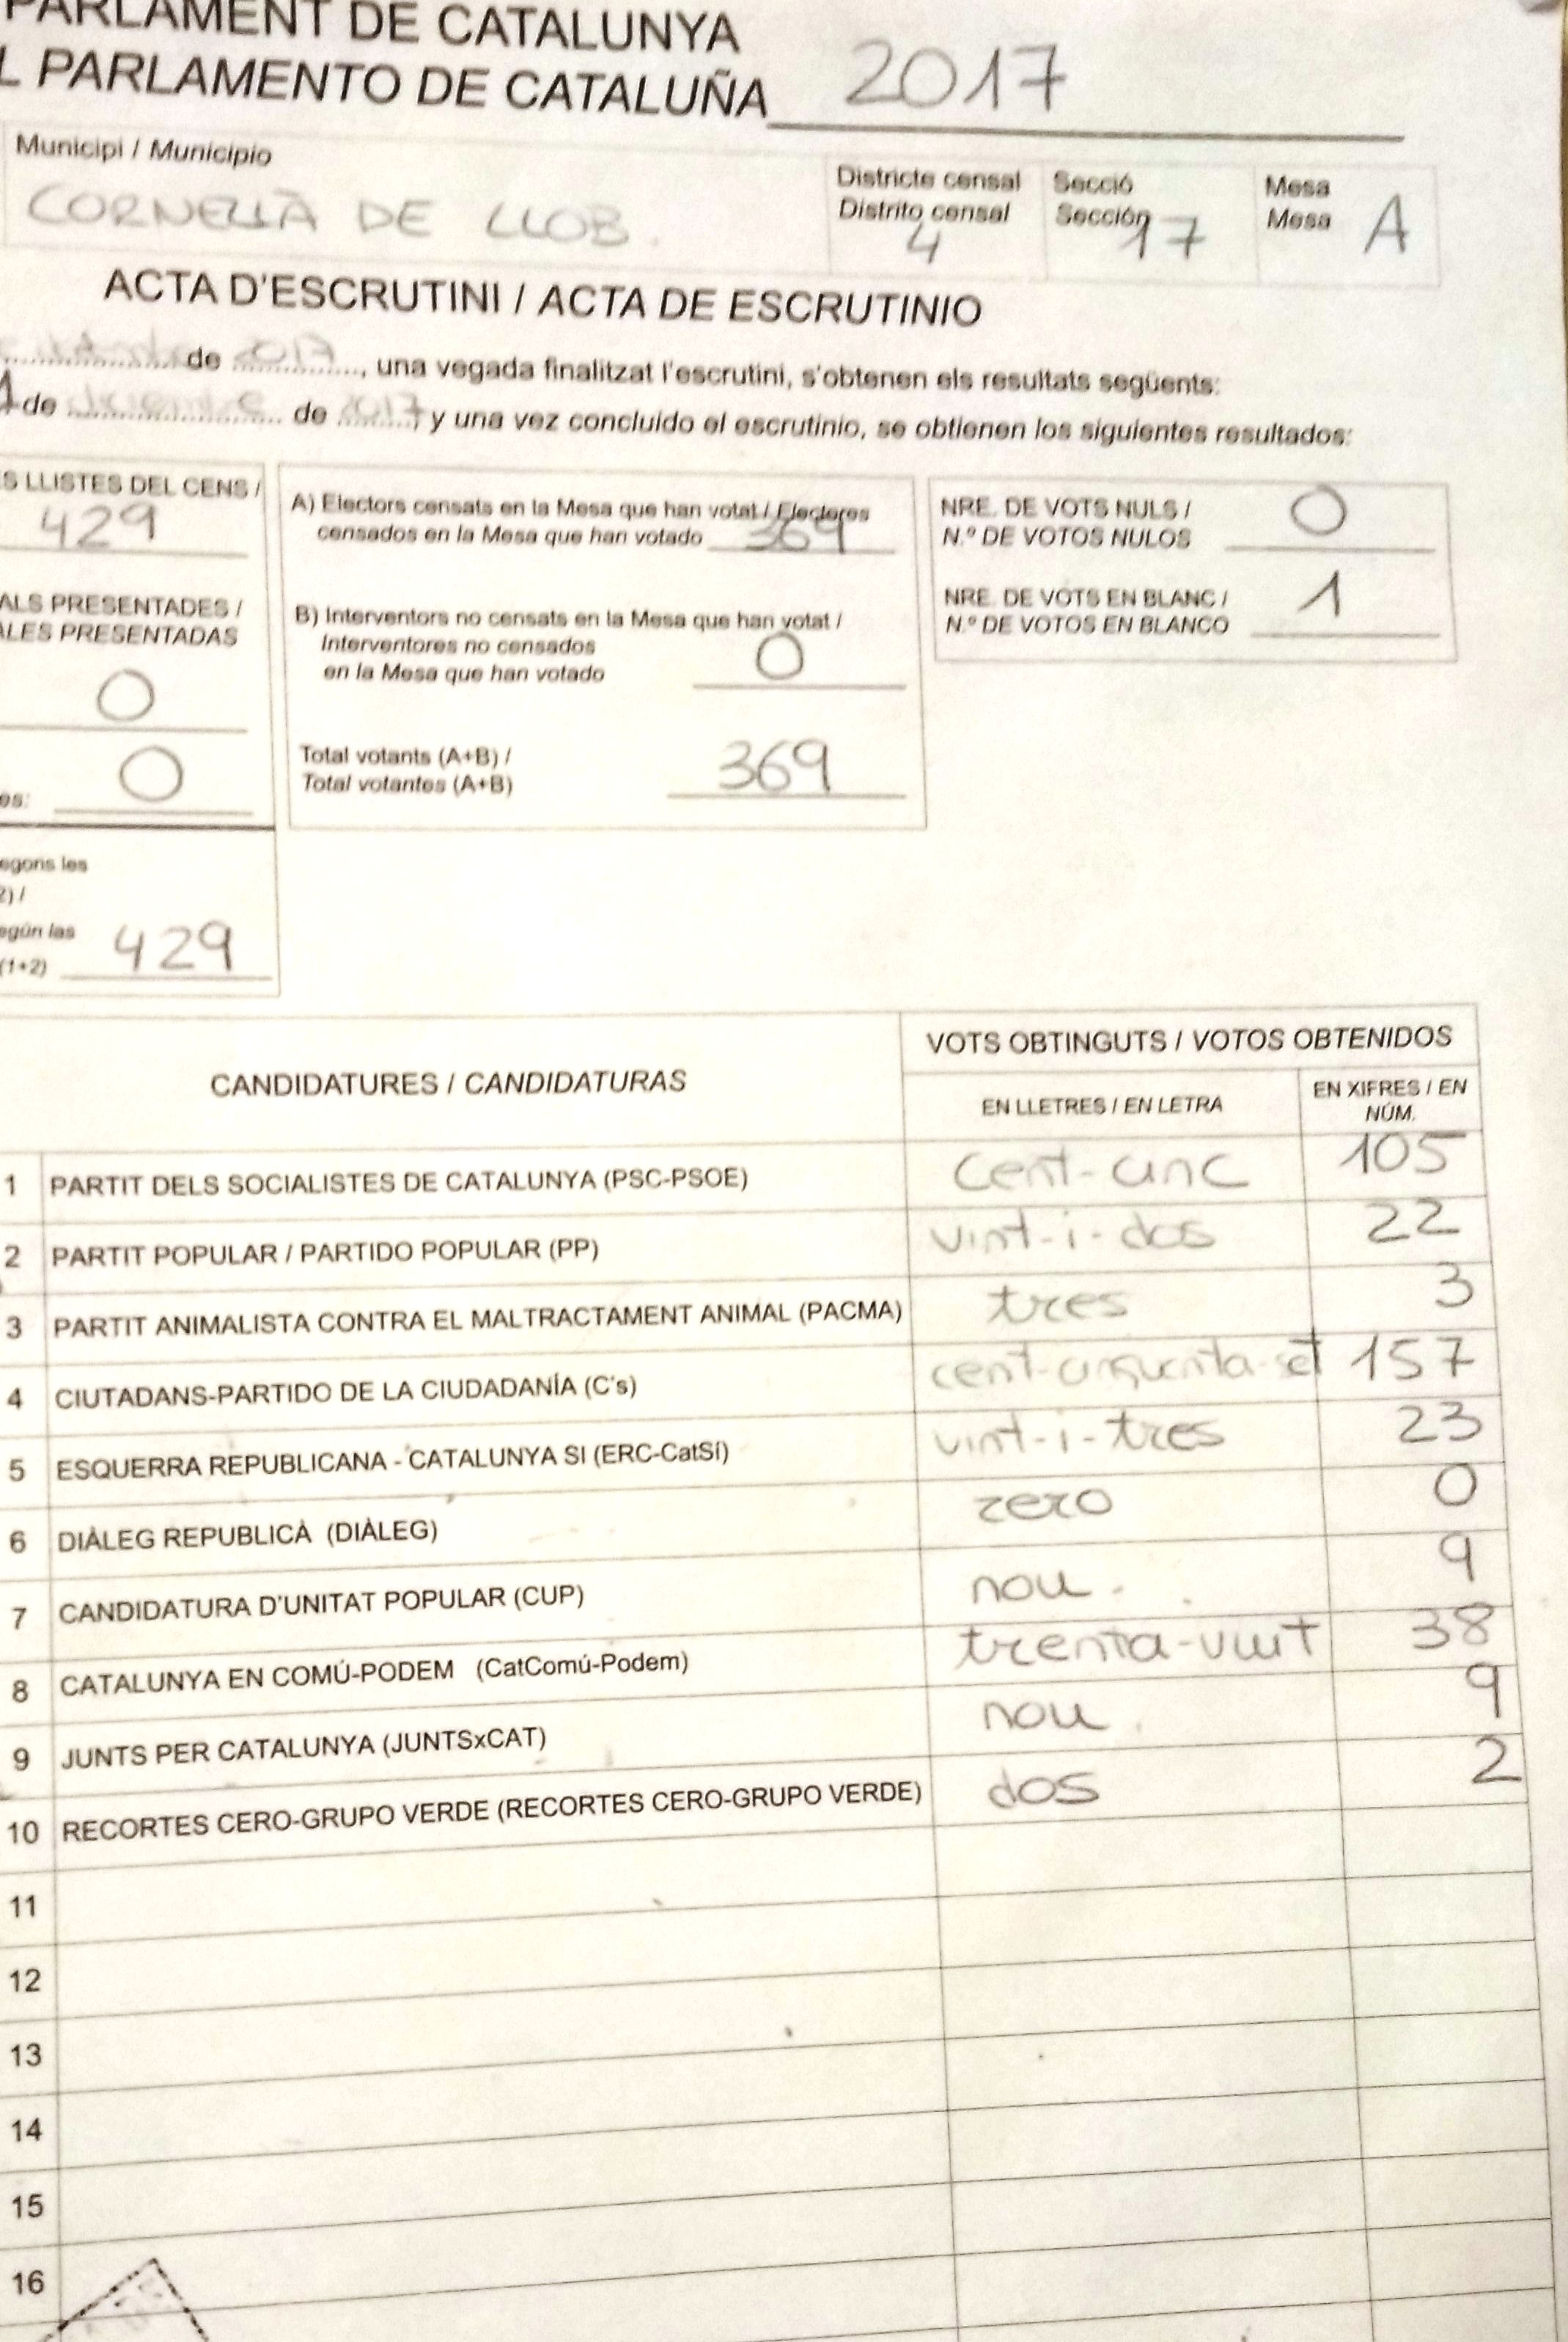 PARLAMENT DE CATALUNYA
L PARLAMENTO DE CATALUÑA 2017
Municipi / Municipio
CORNELLÀ DE LLOB.
Districte censal
Distrito censal
4
Secció
Sección
17
Mesa
Mesa
A
ACTA D'ESCRUTINI / ACTA DE ESCRUTINIO
de 2017, una vegada finalitzat l'escrutini, s'obtenen els resultats següents:
1 de diciembre de 2017, y una vez concluido el escrutinio, se obtienen los siguientes resultados:
S LLISTES DEL CENS /
429
ALS PRESENTADES /
ALES PRESENTADAS
0
es: 0
egons les
2) /
egún las
(1+2) 429
A) Electors censats en la Mesa que han votat / Electores
censados en la Mesa que han votado 369
B) Interventors no censats en la Mesa que han votat /
Interventores no censados
en la Mesa que han votado 0
Total votants (A+B) /
Total votantes (A+B) 369
NRE. DE VOTS NULS /
N.º DE VOTOS NULOS 0
NRE. DE VOTS EN BLANC /
N.º DE VOTOS EN BLANCO 1
CANDIDATURES / CANDIDATURAS
VOTS OBTINGUTS / VOTOS OBTENIDOS
EN LLETRES / EN LETRA
EN XIFRES / EN
NÚM.
1 PARTIT DELS SOCIALISTES DE CATALUNYA (PSC-PSOE) cent-cinc 105
2 PARTIT POPULAR / PARTIDO POPULAR (PP) vint-i-dos 22
3 PARTIT ANIMALISTA CONTRA EL MALTRACTAMENT ANIMAL (PACMA) tres 3
4 CIUTADANS-PARTIDO DE LA CIUDADANÍA (C's) cent-cinquanta-set 157
5 ESQUERRA REPUBLICANA - CATALUNYA SI (ERC-CatSí) vint-i-tres 23
6 DIÀLEG REPUBLICÀ (DIÀLEG) zero 0
7 CANDIDATURA D'UNITAT POPULAR (CUP) nou. 9
8 CATALUNYA EN COMÚ-PODEM (CatComú-Podem) trenta-vuit 38
9 JUNTS PER CATALUNYA (JUNTSxCAT) nou. 9
10 RECORTES CERO-GRUPO VERDE (RECORTES CERO-GRUPO VERDE) dos 2
11
12
13
14
15
16